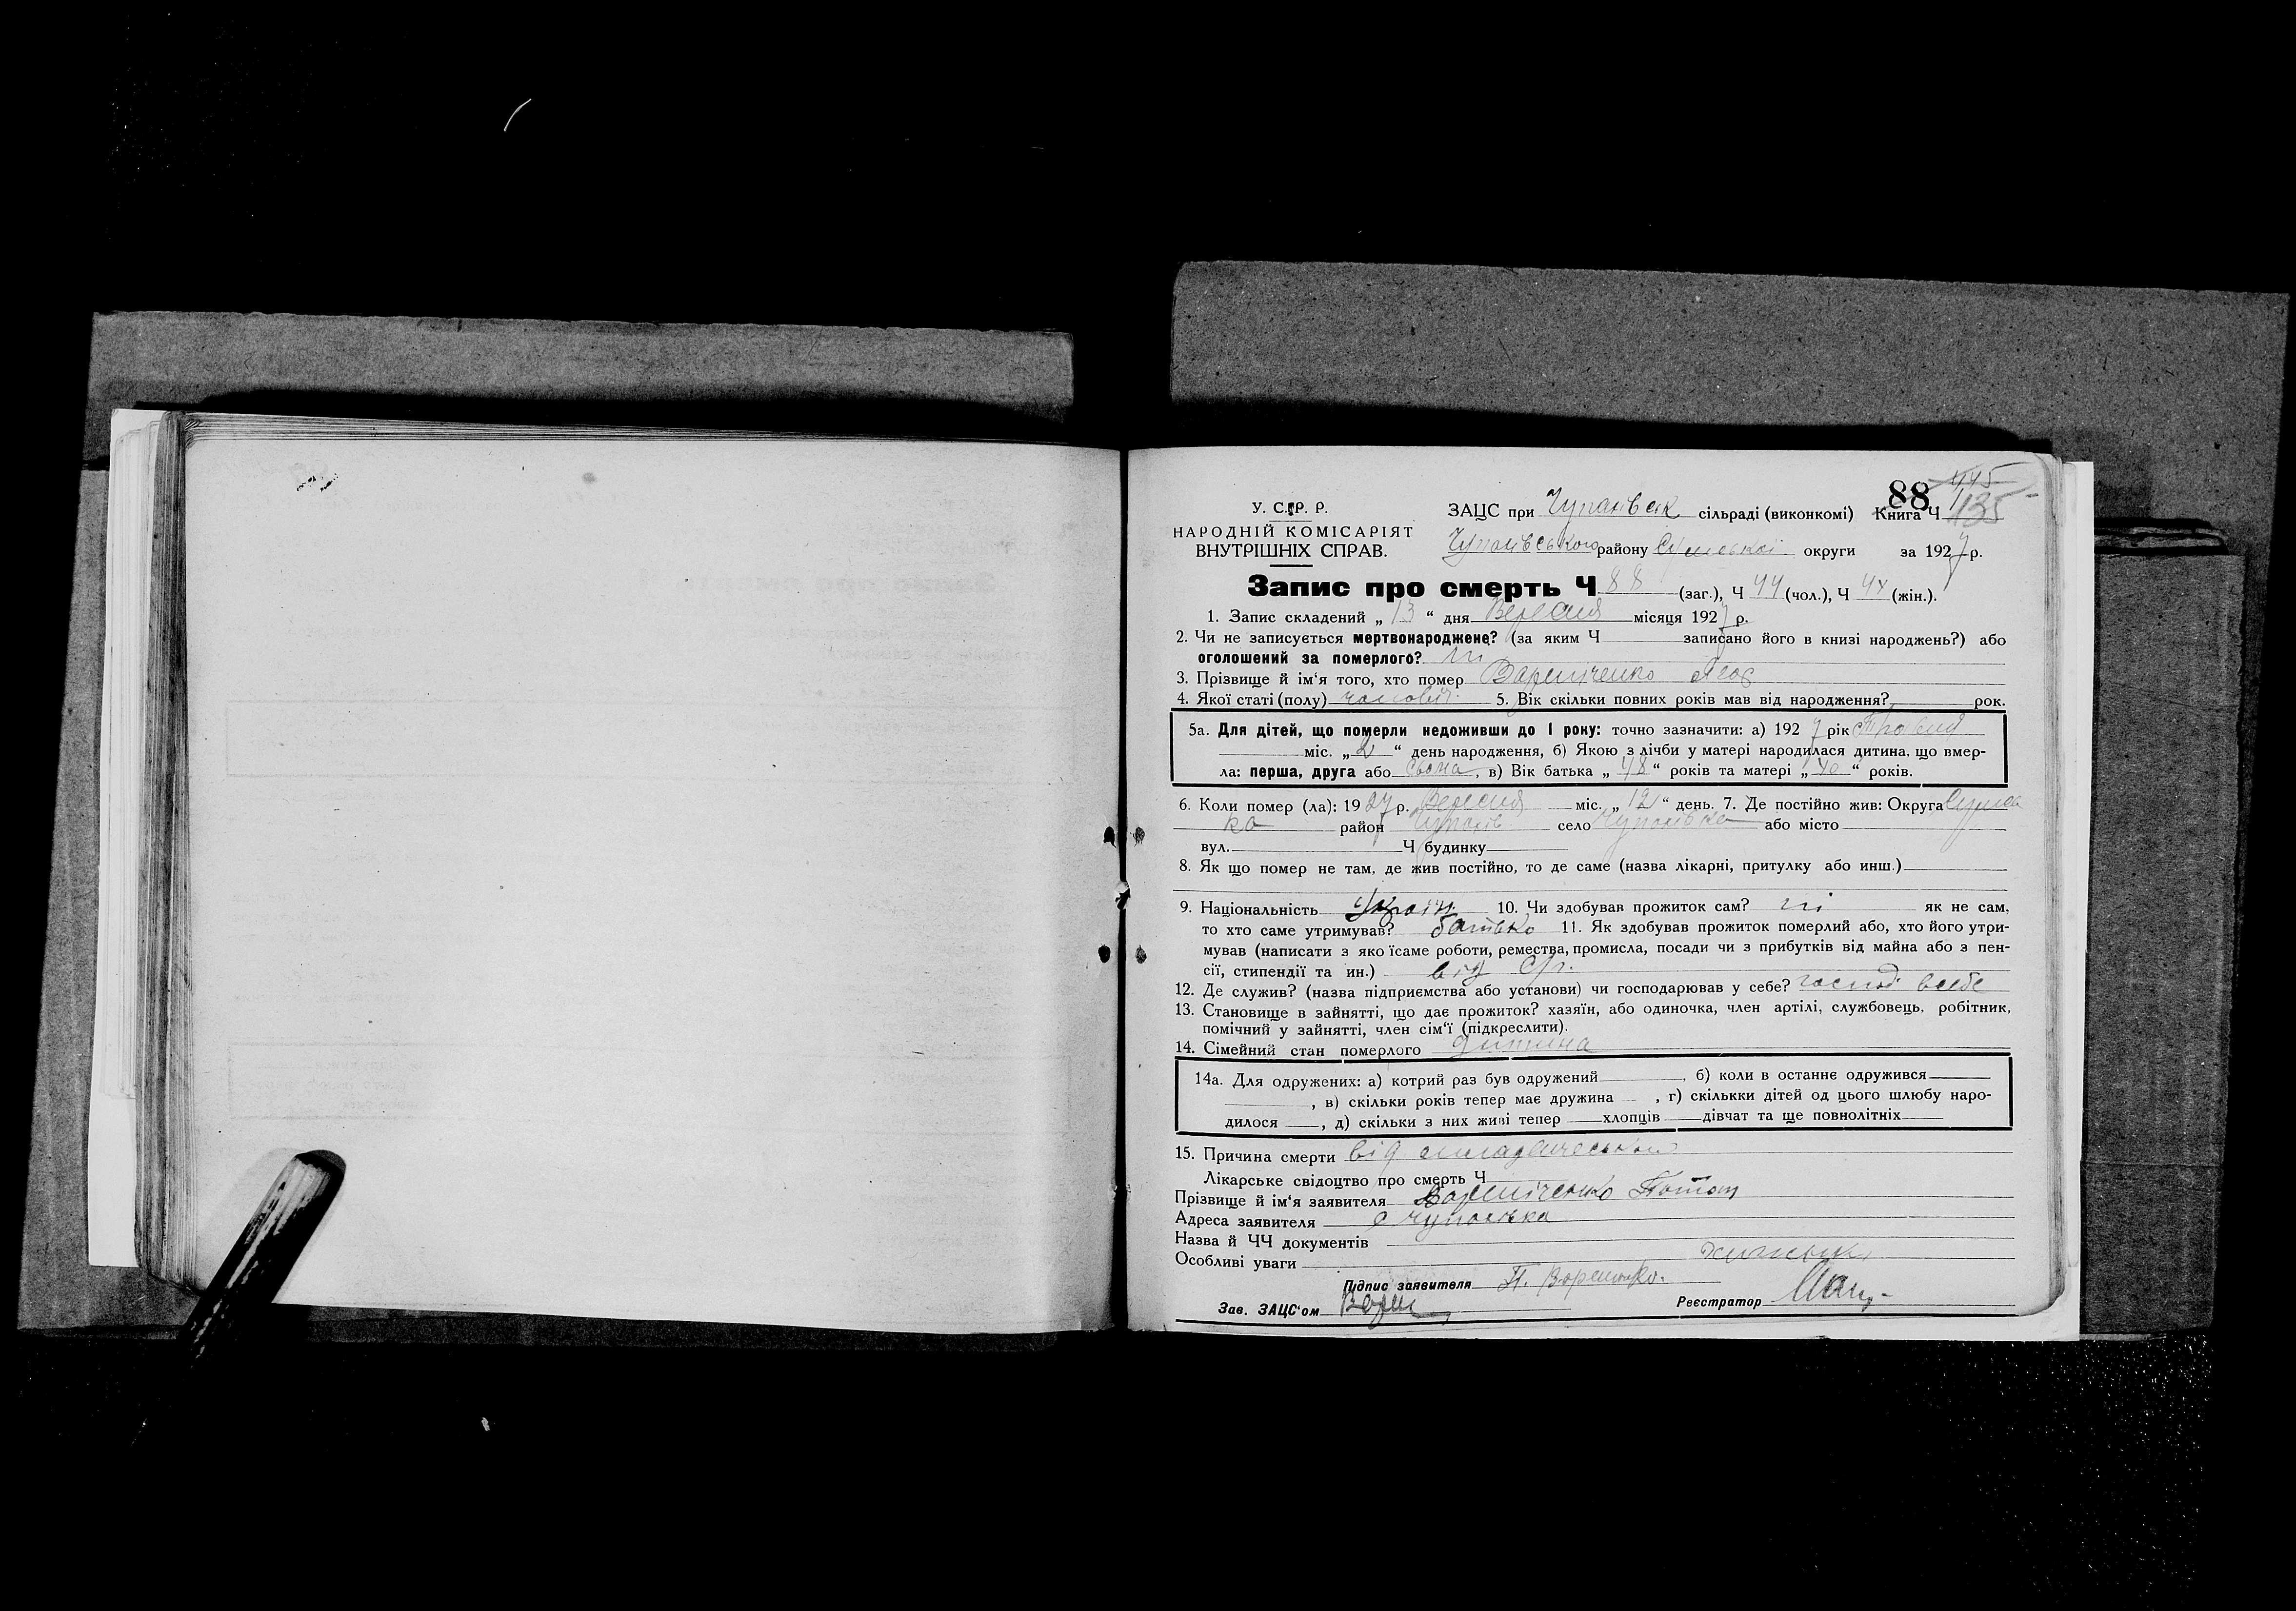 88 445
У. С. Р. Р.
НАРОДНІЙ КОМІСАРІЯТ
ВНУТРІШНІХ СПРАВ.
ЗАЦС при сільраді (виконкомі) Книга Ч 135
району Сумської округи за 1927 р.
Запис про смерть Ч 88 (заг.), Ч 44 (чол.), Ч 44 (жін.).
1. Запис складений „ 13 “ дня Вересня місяця 1927 р.
2. Чи не записується мертвонароджене? (за яким Ч записано його в книзі народжень?) або
оголошений за померлого? ні
3. Прізвище й ім‘я того, хто помер
4. Якої статі (полу) чоловіч. 5. Вік скільки повних років мав від народження? рок.
5а. Для дітей, що померли недоживши до 1 року: точно зазначити: а) 1927 рік Травня
міс. „ 2 “ день народження, б) Якою з лічби у матері народилася дитина, що вмер-
ла: перша, друга або сьома, в) Вік батька „ 48 “ років та матері „ 40 “ років.
6. Коли помер (ла): 1927 р. Вересня міс. „ 12 “ день. 7. Де постійно жив: Округа Сумсь
ка район село або місто
вул. Ч будинку
8. Як що помер не там, де жив постійно, то де саме (назва лікарні, притулку або инш.)
9. Національність Україн. 10. Чи здобував прожиток сам? ні як не сам,
то хто саме утримував? батько 11. Як здобував прожиток померлий або, хто його утри-
мував (написати з яко їсаме роботи, ремества, промисла, посади чи з прибутків від майна або з пен-
сії, стипендії та ин.) від с/г.
12. Де служив? (назва підприємства або установи) чи господарював у себе? господ. в себе
13. Становище в зайнятті, що дає прожиток? хазяїн, або одиночка, член артілі, службовець, робітник,
помічний у зайнятті, член сім‘ї (підкреслити).
14. Сімейний стан померлого дитина
14а. Для одружених: а) котрий раз був одружений , б) коли в останнє одружився
, в) скільки років тепер має дружина , г) скількки дітей од цього шлюбу наро-
дилося , д) скільки з них живі тепер хлопців дівчат та ще повнолітніх
15. Причина смерти від
Лікарське свідоцтво про смерть Ч
Прізвище й ім‘я заявителя
Адреса заявителя с
Назва й ЧЧ документів
Особливі уваги
Підпис заявителя П.
Зав. ЗАЦС‘ом Реєстратор